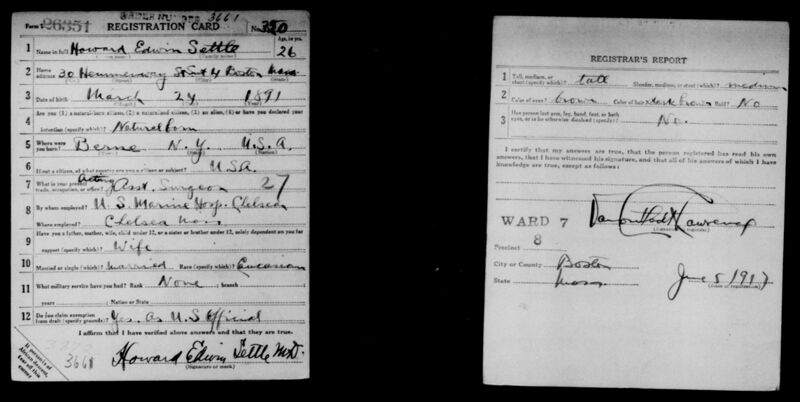 ORDER NUMBER 3661
Form 1 26351 REGISTRATION CARD No. 320
1 Name in full Howard Edwin Settle Age, in yrs. 26
2 Home address 30 Hemmenway St Boston Mass
3 Date of birth March 24 1891
4 Are you (1) a natural-born citizen, (2) a naturalized citizen, (3) an alien, (4) or have you declared your
intention (specify which)? Natural born
5 Where were you born? Berne N.Y. U.S.A.
6 If not a citizen, of what country are you a citizen or subject? USA
7 What is your present trade, occupation, or office? Acting Asst. Surgeon 27
8 By whom employed? U.S. Marine Hosp. Chelsea
Where employed? Chelsea Mass.
9 Have you a father, mother, wife, child under 12, or a sister or brother under 12, solely dependent on you for
support (specify which)? Wife
10 Married or single (which)? Married Race (specify which)? Caucasian
11 What military service have you had? Rank None ; branch
years ; Nation or State
12 Do you claim exemption from draft (specify grounds)? Yes. As U.S Official
I affirm that I have verified above answers and that they are true.
3661
Howard Edwin Settle M.D.
(Signature or mark)
If person is of African descent, tear off this corner.
REGISTRAR'S REPORT
1 Tall, medium, or short (specify which)? tall Slender, medium, or stout (which)? medium
2 Color of eyes? brown Color of hair? dark brown Bald? No
3 Has person lost arm, leg, hand, foot, or both eyes, or is he otherwise disabled (specify)? No.
I certify that my answers are true, that the person registered has read his own
answers, that I have witnessed his signature, and that all of his answers of which I
have knowledge are true, except as follows:
WARD 7
8
Precinct
City or County Boston
State Mass.
June 5 1917
(Date of registration)